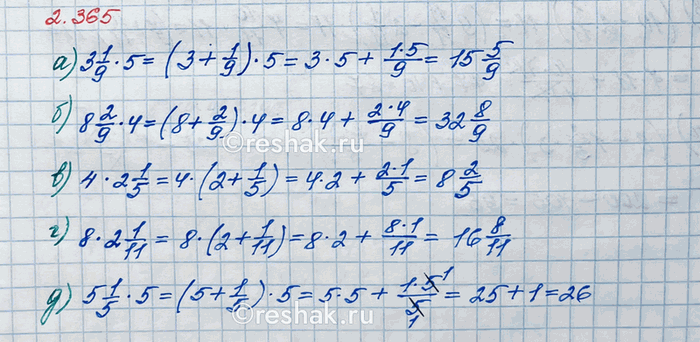 2.365
а) 3 1/9 · 5 = (3 + 1/9) · 5 = 3 · 5 + 1·5/9 = 15 5/9
б) 8 2/9 · 4 = (8 + 2/9) · 4 = 8 · 4 + 2·4/9 = 32 8/9
©reshak.ru
в) 4 · 2 1/5 = 4 · (2 + 1/5) = 4 · 2 + 2·1/5 = 8 2/5
г) 8 · 2 1/11 = 8 · (2 + 1/11) = 8 · 2 + 8·1/11 = 16 8/11
д) 5 1/5 · 5 = (5 + 1/5) · 5 = 5 · 5 + 1·5 1/5 1 = 25 + 1 = 26
©reshak.ru